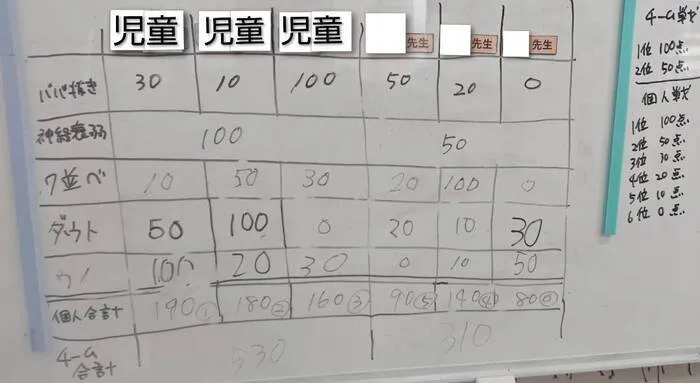 児童 児童 児童 先生 先生 先生
ババ抜き 30 10 100 50 20 0
神経衰弱 100 50
7並べ 10 50 30 20 100 0
ダウト 50 100 0 20 10 30
ウノ 100 20 30 0 10 50
個人合計 190① 180② 160③ 90⑤ 140④ 80⑥
チーム
合計 530 310
チーム戦
1位 100点
2位 50点
個人戦
1位 100点
2位 50点
3位 30点
4位 20点
5位 10点
6位 0点